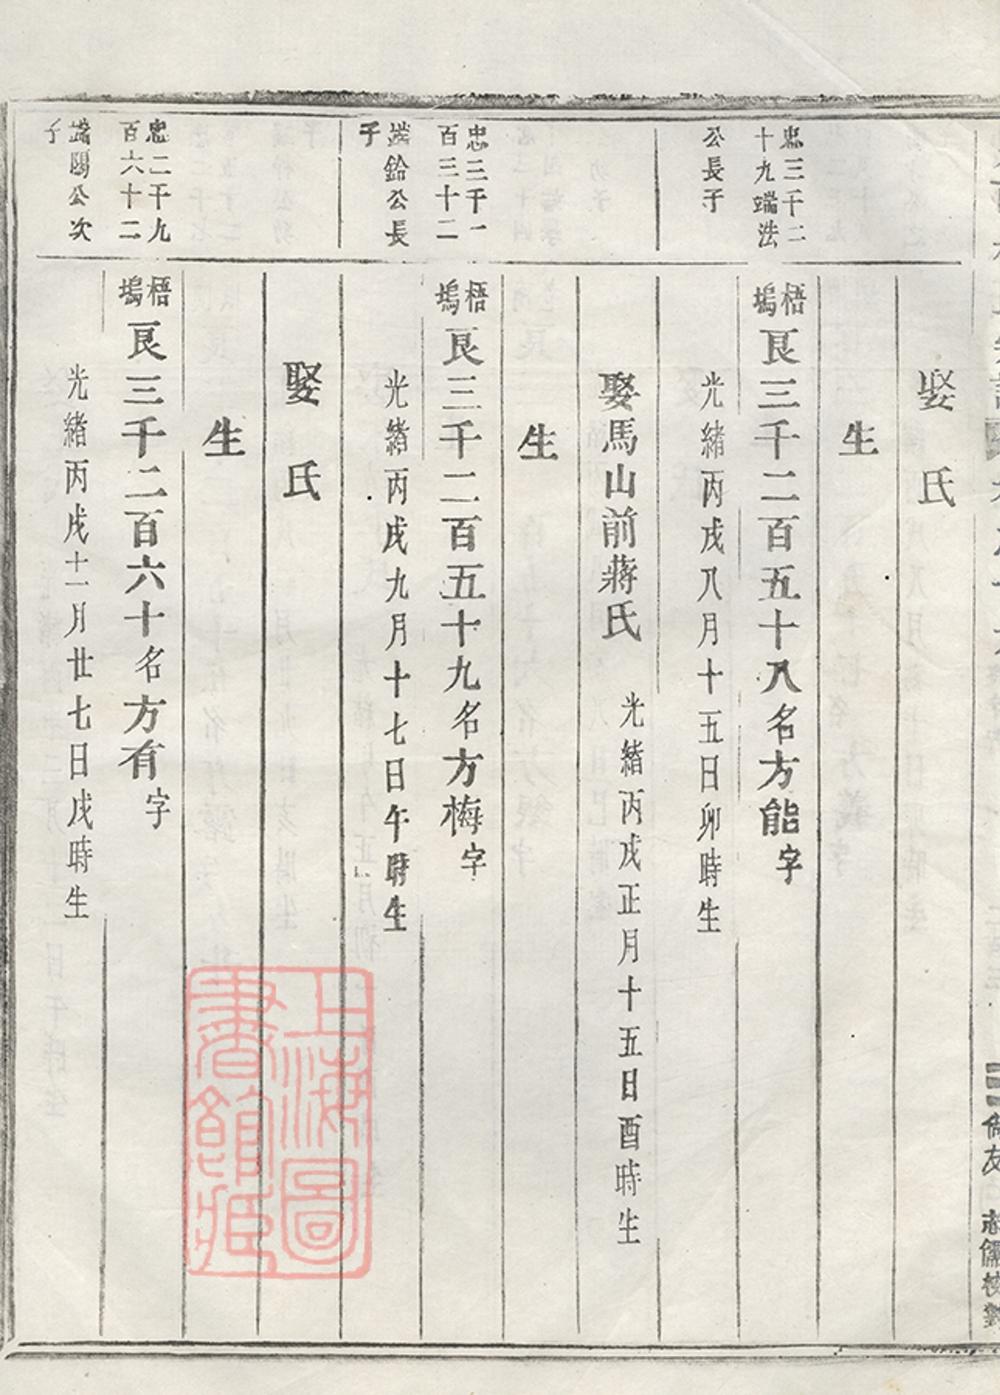 娶 氏
生
忠三千二十九端法公長子
梧塢艮三千二百五十八名方能字
光緒丙戌八月十五日卯時生
娶馬山前蔣氏 光緒丙戌正月十五日酉時生
生
忠三千一百三十二端鈴公長子
梧塢艮三千二百五十九名方梅字
光緒丙戌九月十七日午時生
娶 氏
生
忠二千九百六十二端陽公次子
梧塢艮三千二百六十名方有字
光緒丙戌十一月廿七日戌時生
上海圖書館藏